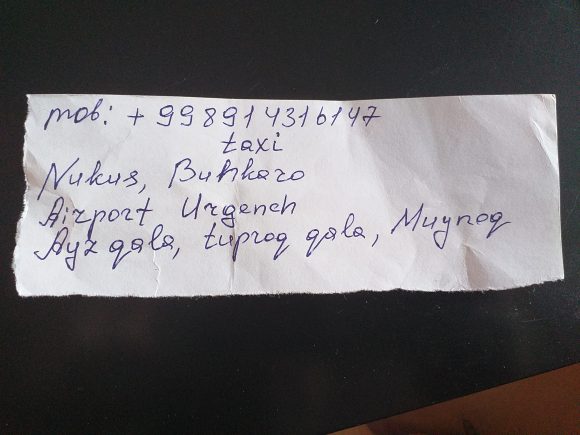 mob: + 998914316147
taxi
Nukus, Buhharo
Airport Urgench
Ayz qala, tuproq qala, Muynoq